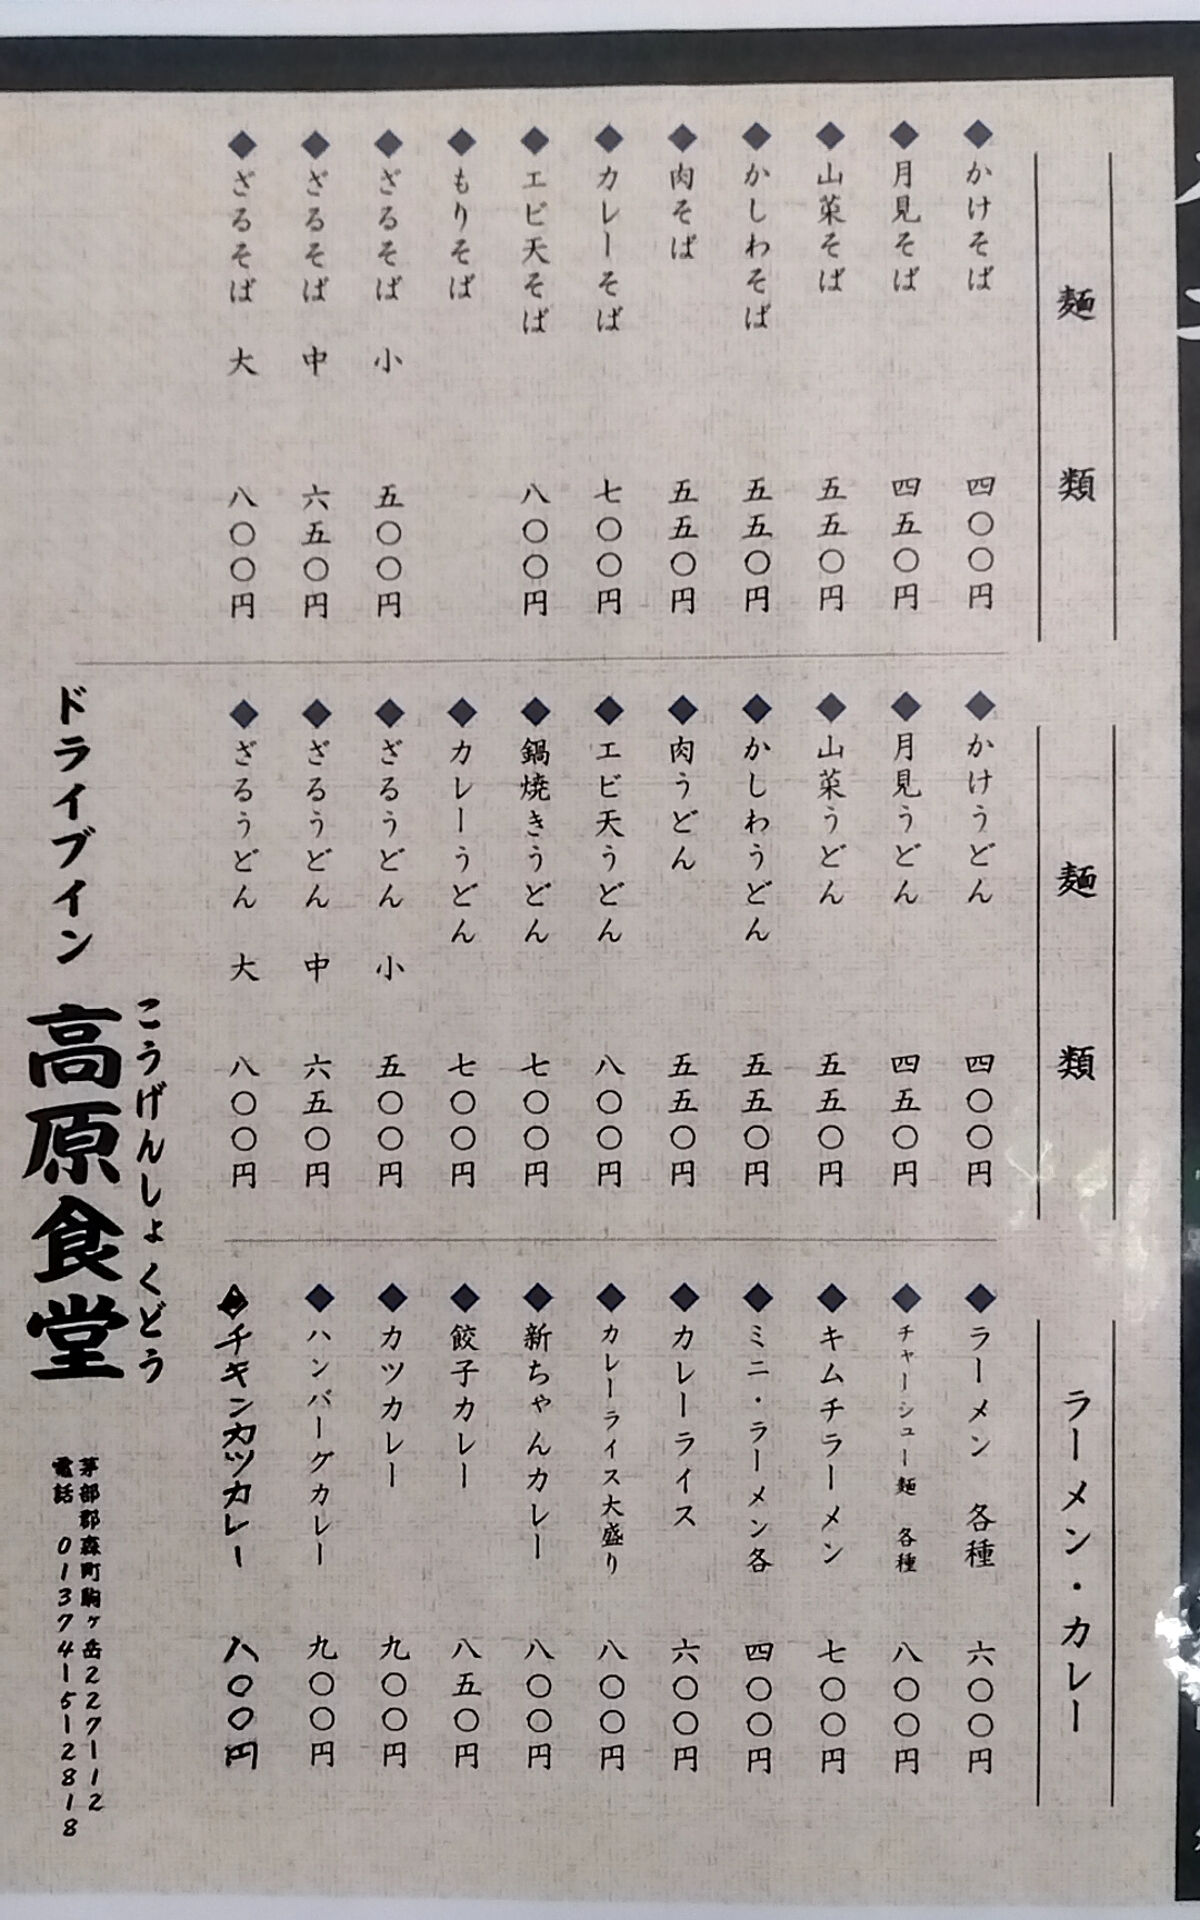 麺類
かけそば 四〇〇円
月見そば 四五〇円
山菜そば 五五〇円
かしわそば 五五〇円
肉そば 五五〇円
カレーそば 七〇〇円
エビ天そば 八〇〇円
もりそば
ざるそば 小 五〇〇円
ざるそば 中 六五〇円
ざるそば 大 八〇〇円
麺類
かけうどん 四〇〇円
月見うどん 四五〇円
山菜うどん 五五〇円
かしわうどん 五五〇円
肉うどん 五五〇円
エビ天うどん 八〇〇円
鍋焼きうどん 七〇〇円
カレーうどん 七〇〇円
ざるうどん 小 五〇〇円
ざるうどん 中 六五〇円
ざるうどん 大 八〇〇円
ラーメン・カレー
ラーメン 各種 六〇〇円
チャーシュー麺 各種 八〇〇円
キムチラーメン 七〇〇円
ミニ・ラーメン各 四〇〇円
カレーライス 六〇〇円
カレーライス大盛り 八〇〇円
新ちゃんカレー 八〇〇円
餃子カレー 八五〇円
カツカレー 九〇〇円
ハンバーグカレー 九〇〇円
チキンカツカレー 八〇〇円
こうげんしょくどう
ドライブイン 高原食堂
茅部郡森町駒ヶ岳227-12
電話 01374-5-2818